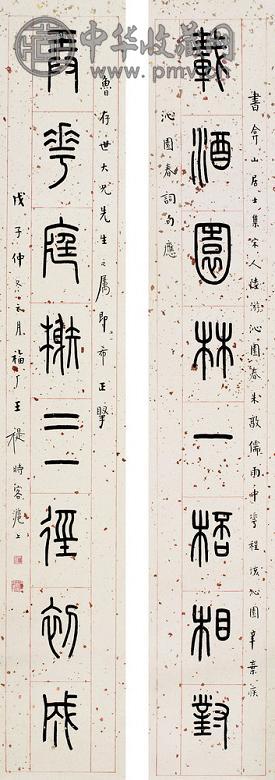 中华收藏网
www.pmv.cn
書弇山居士集宋人陸游沁園春朱敦儒雨中花程垓沁園辛棄疾
載酒園林一桮相對
沁園春詞句應
魯存世大兄先生之屬即希正
華庭榭三徑初成
戊子仲冬之月福厂王禔時客滬上